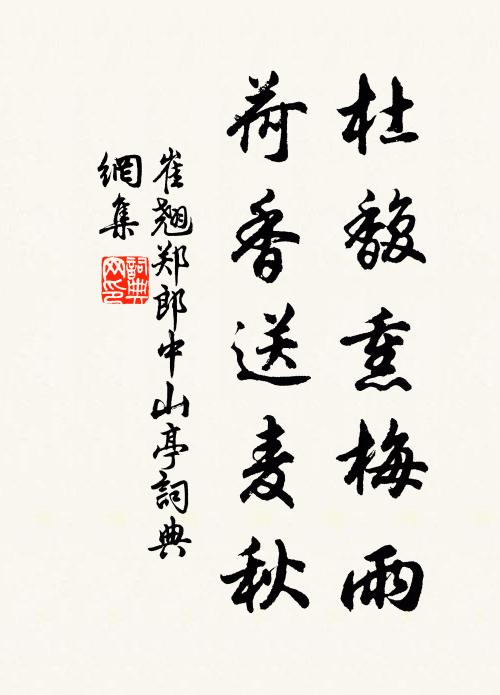 杜馥熏梅雨
荷香送麦秋
崔翘郑郎中山亭詞典
網集
詞典
网印